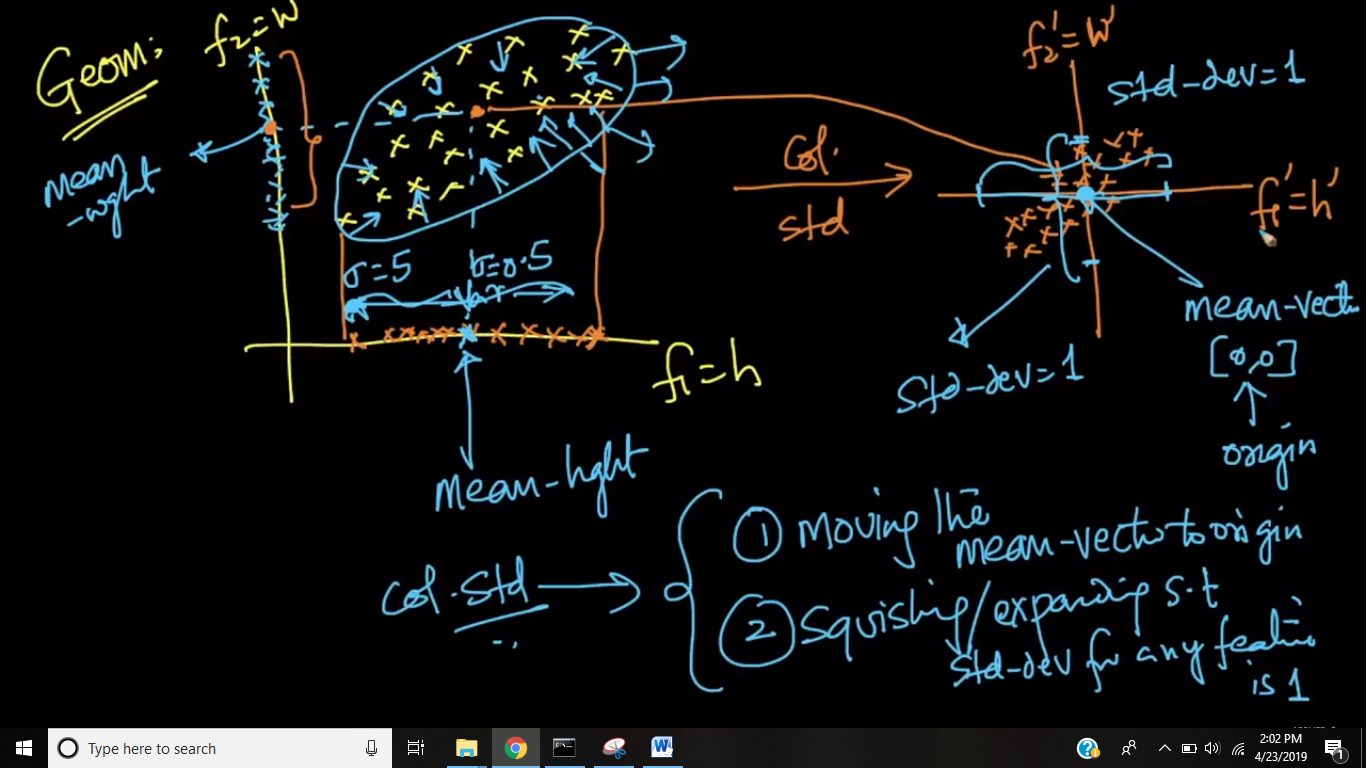 Geom:
f₂=W
mean
-wght
σ=5
σ=0.5
Var
f₁=h
mean-hght
Col.
std
f₂'=W'
std-dev=1
f₁'=h'
mean-vect
[0,0]
origin
Std-dev=1
Col.Std
① Moving the
mean-vector to origin
② Squishing/expanding s.t
std-dev for any feature
is 1
Type here to search
2:02 PM
4/23/2019
1